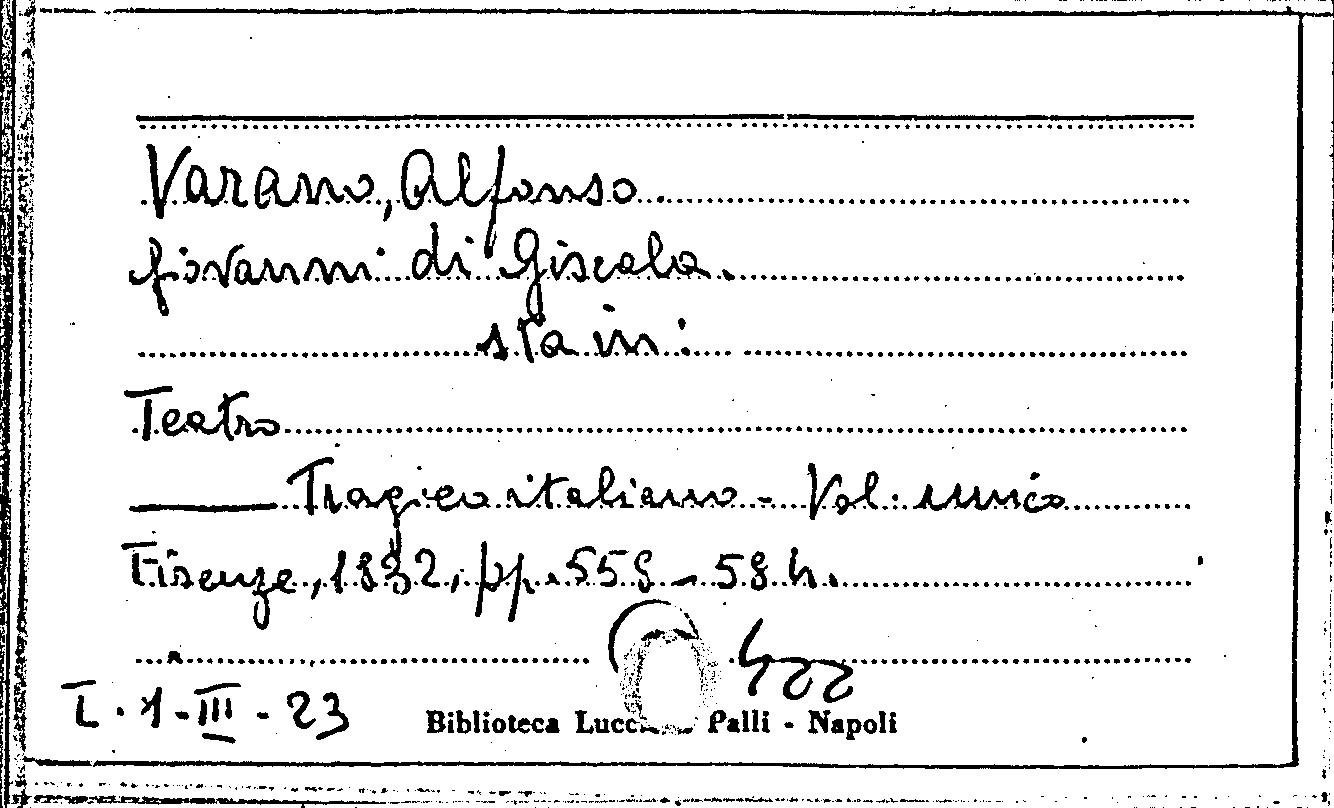 Varano, Alfonso.
Giovanni di Giscala.
sta in:
Teatro
Tragico italiano - Vol. unico
Firenze, 1832, pp. 559 - 584.
I. 1 - III - 23
Biblioteca Palli - Napoli